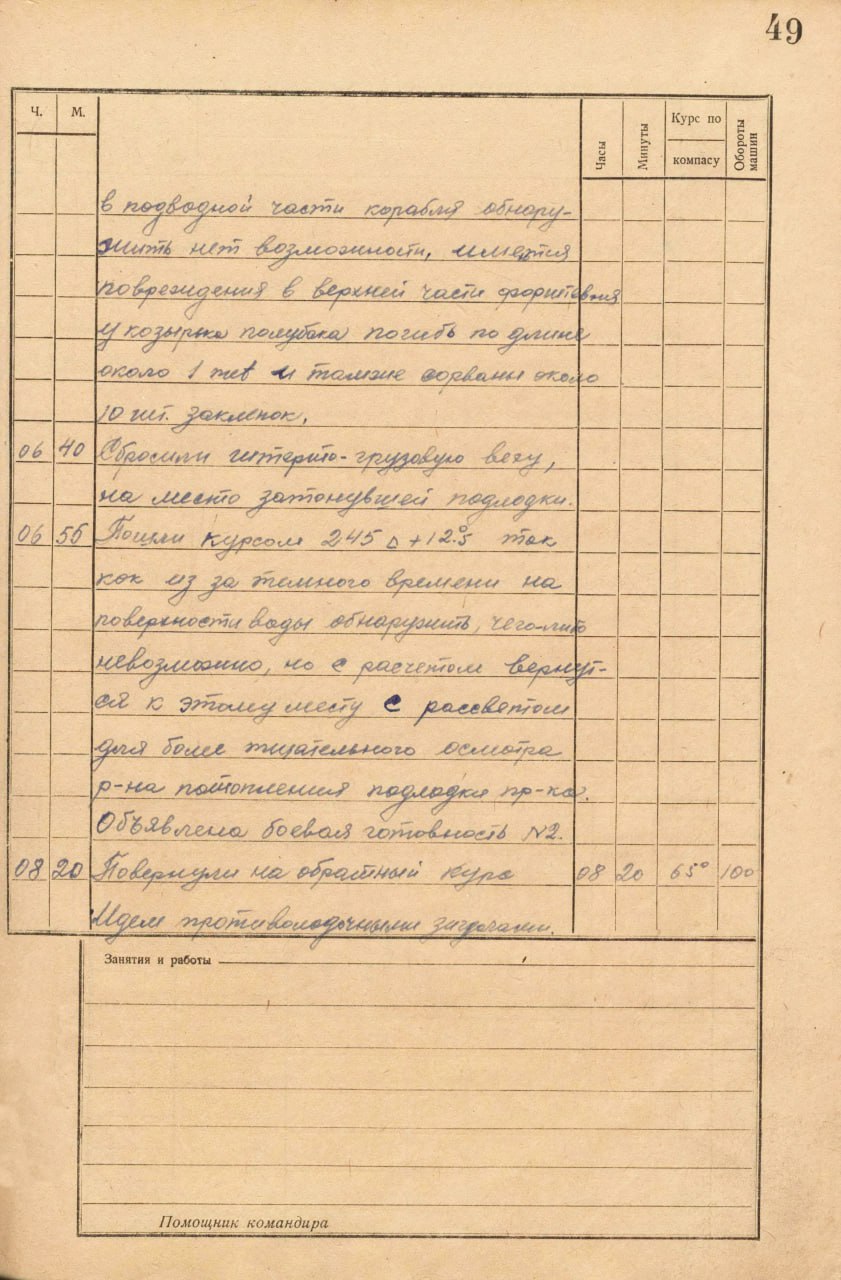 49
Ч. М. Часы Минуты Курс по компасу Обороты машин
в подводной части корабля обнару-
жить нет возможности, имеются
повреждения в верхней части форштевня
у козырька полубака погибь по длине
около 1 met и тамже сорваны около
10 шт. заклепок.
06 40 Сбросили грузовую веху,
на место затонувшей подлодки.
06 55 Пошли курсом 245 Δ + 12.°5 так
как из за темного времени на
поверхности воды обнаружить, чего-либо
невозможно, но с расчетом вернут-
ся к этому месту с рассветом
для более тщательного осмотра
р-на потопления подлодки пр-ка.
Объявлена боевая готовность N2.
08 20 Повернули на обратный курс 08 20 65° 100
Идем противолодочными зигзагами.
Занятия и работы
Помощник командира